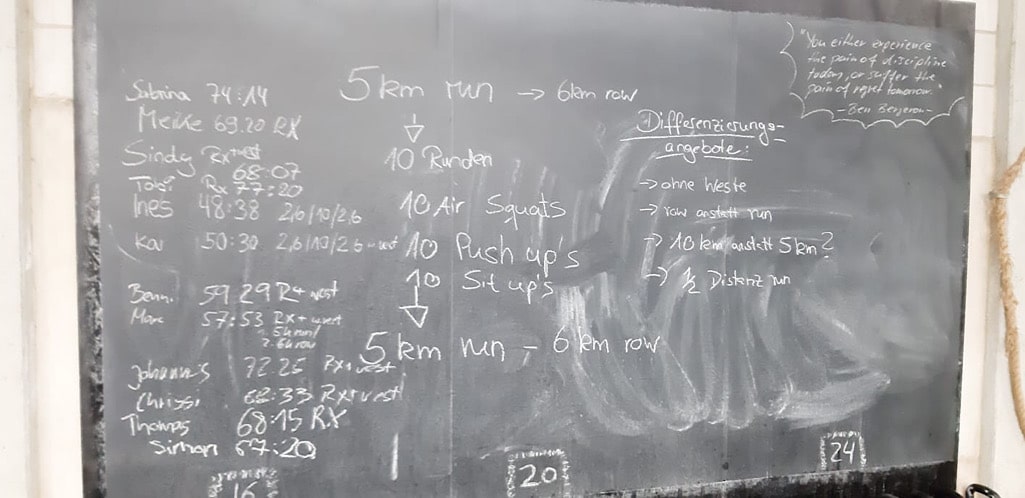 Sabrina 74:14
Meike 69.20 RX
Sindy Rx+vest
68:07
Tobi Rx 77:20
Ines 48:38 2,6/10/2,6
Kai 50:30 2,6/10/2,6 - vest
Benni 59 29 R+ vest
Marc 57:53 RX+ vest
Johannes 72.25 RX+ vest
Chrissi 68:33 RX+vest
Thomas 68:15 RX
Simon 67:20
5km run -> 6km row
10 Runden
10 Air Squats
10 Push up's
10 Sit up's
5km run - 6km row
Differenzierungs-
angebote:
-> ohne Weste
-> row anstatt run
-> 10km anstatt 5km?
-> 1/2 Distanz run
"You either experience
the pain of discipline
today, or suffer the
pain of regret tomorrow."
- Ben Bergeron -
16
20
24